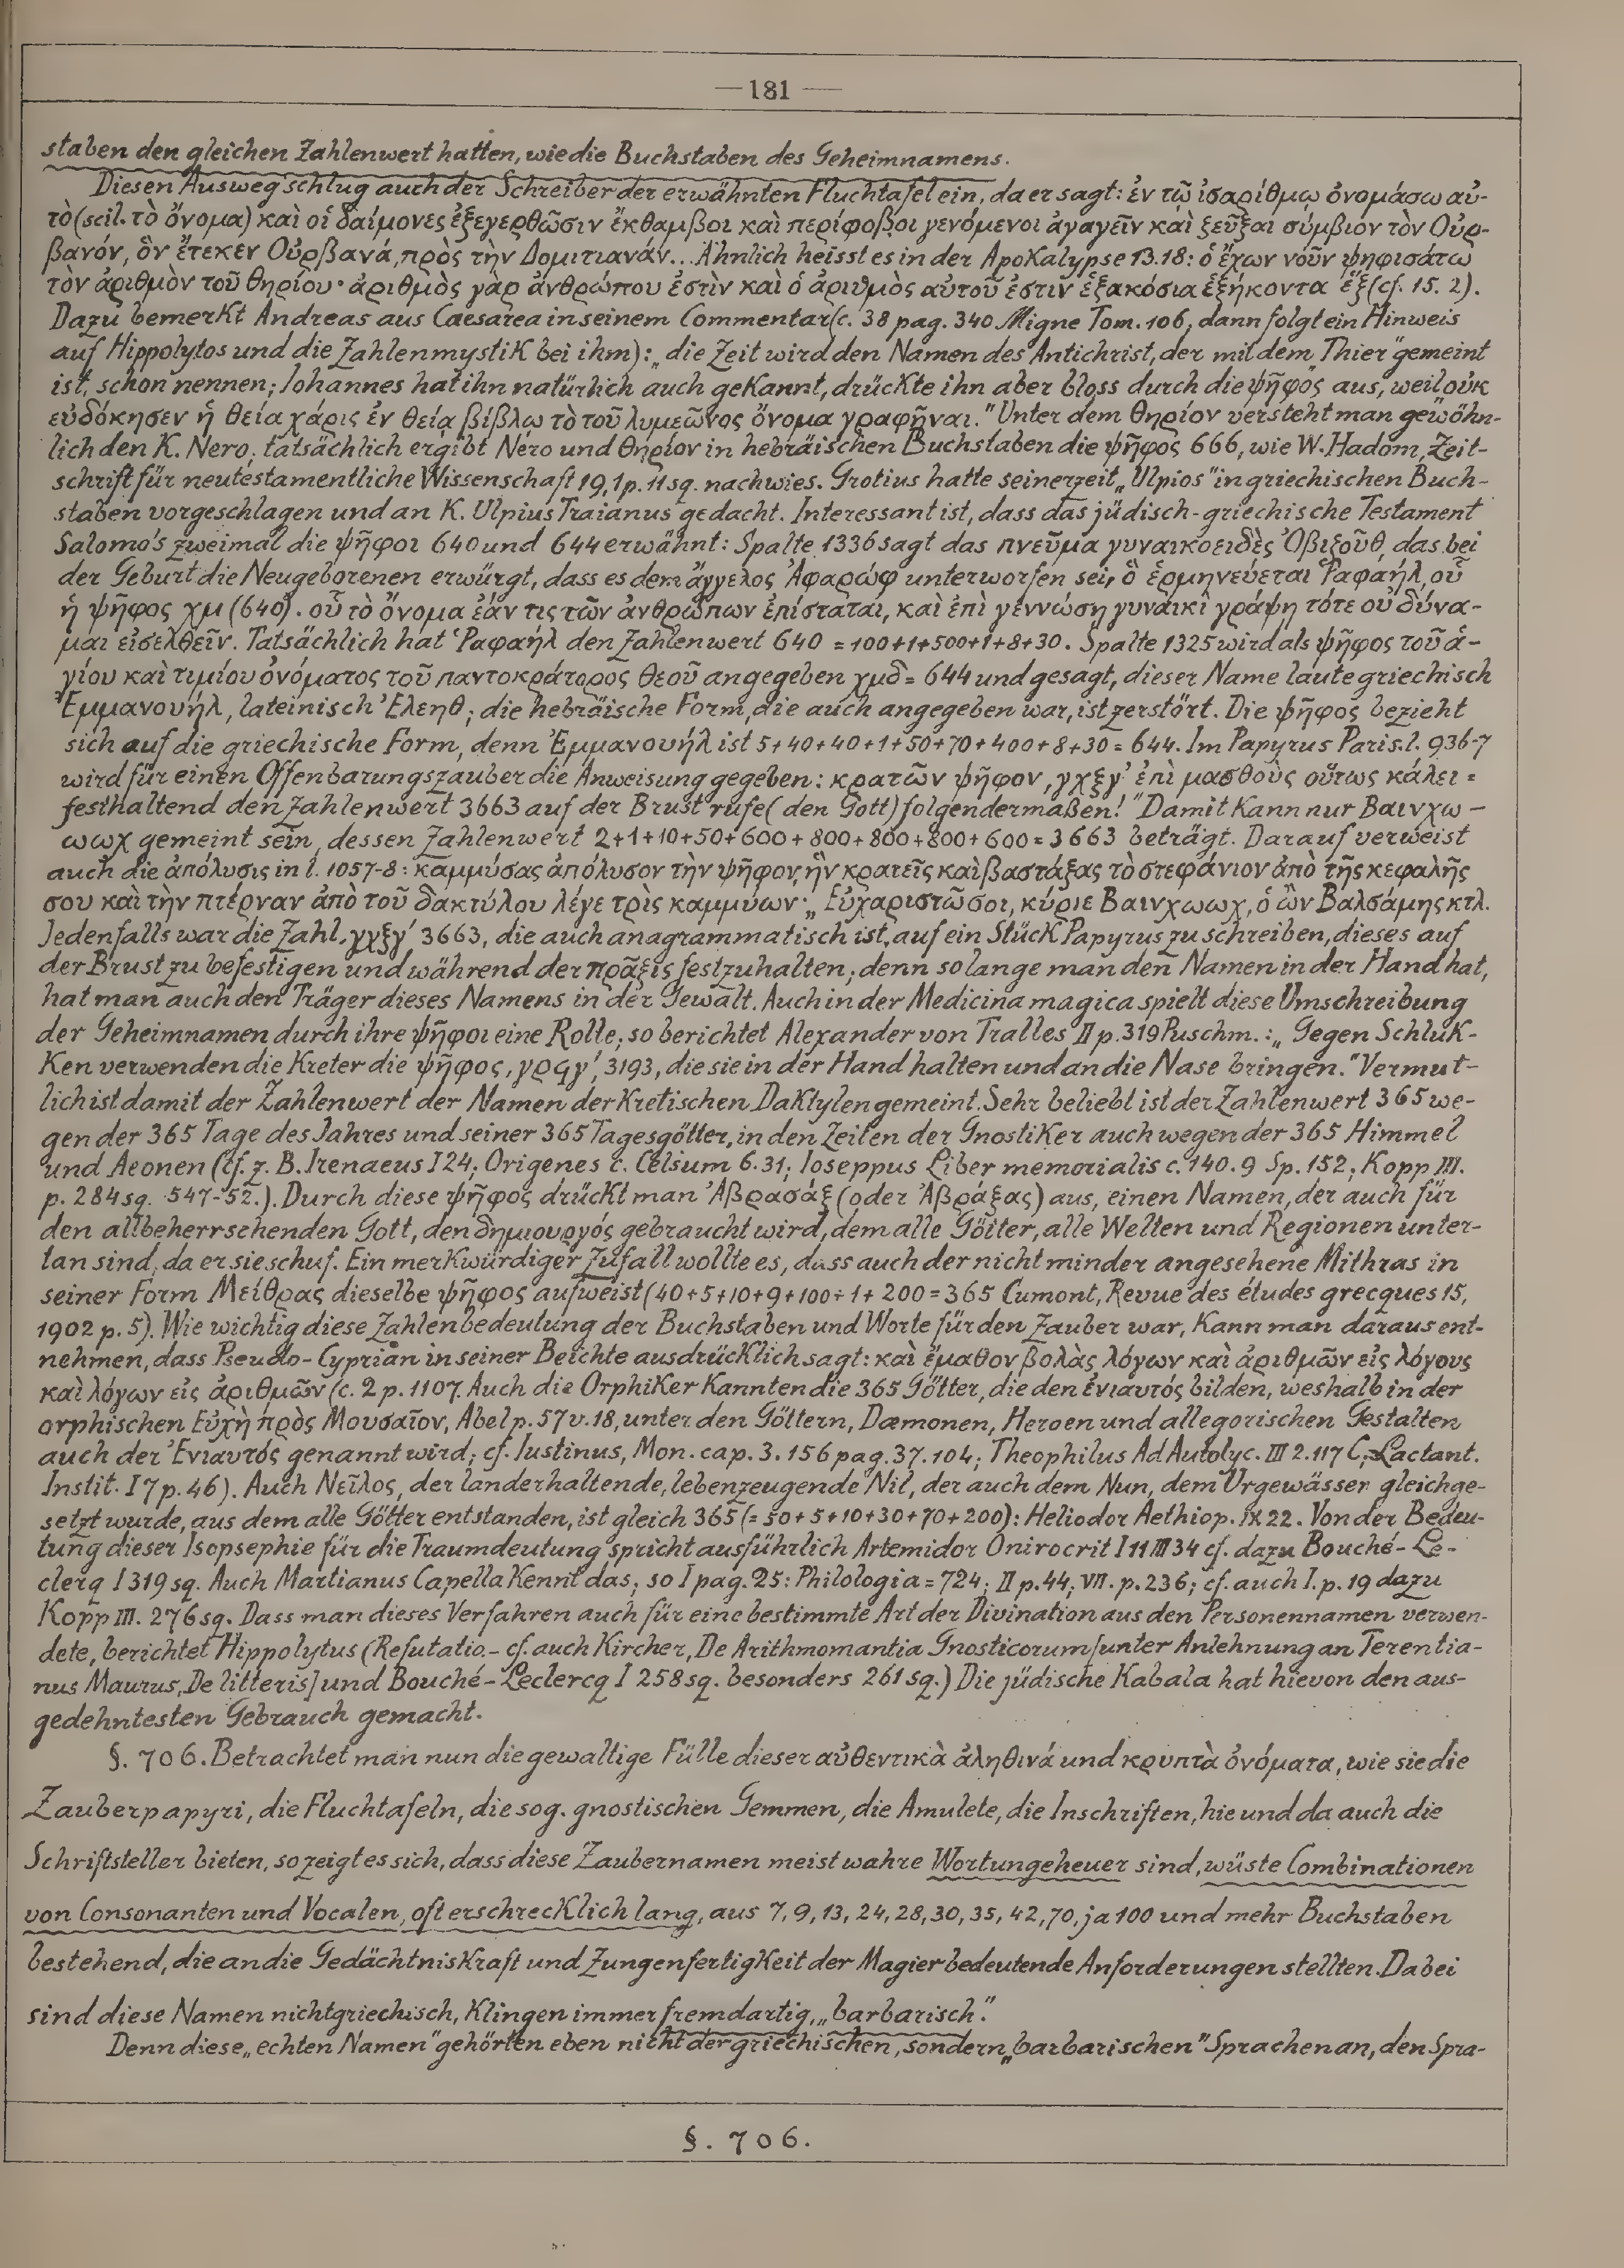 — 181 —
staben den gleichen Zahlenwert hatten, wie die Buchstaben des Geheimnamens.
Diesen Ausweg schlug auch der Schreiber der erwähnten Fluchtafel ein, da er sagt: ἐν τῷ ἰσαρίθμῳ ὀνομάσω αὐ-
τὸ (scil. τὸ ὄνομα) καὶ οἱ δαίμονες ἐξεγερθῶσιν ἔκθαμβοι καὶ περίφοβοι γενόμενοι ἀγαγεῖν καὶ ζεῦξαι σύμβιον τὸν Οὐρ-
βανόν, ὃν ἔτεκεν Οὐρβανά, πρὸς τὴν Δομιτιανάν... Ähnlich heisst es in der Apokalypse 13.18: ὁ ἔχων νοῦν ψηφισάτω
τὸν ἀριθμὸν τοῦ θηρίου· ἀριθμὸς γὰρ ἀνθρώπου ἐστὶν καὶ ὁ ἀριθμὸς αὐτοῦ ἐστιν ἑξακόσια ἑξήκοντα ἕξ (cf. 15. 2).
Dazu bemerkt Andreas aus Caesarea in seinem Commentar (c. 38 pag. 340 Migne Tom. 106, dann folgt ein Hinweis
auf Hippolytos und die Zahlenmystik bei ihm): „die Zeit wird den Namen des Antichrist, der mit dem „Thier" gemeint
ist, schon nennen; Iohannes hat ihn natürlich auch gekannt, drückte ihn aber bloss durch die ψῆφος aus, weil οὐκ
εὐδόκησεν ἡ θεία χάρις ἐν θείᾳ βίβλῳ τὸ τοῦ λυμεῶνος ὄνομα γραφῆναι." Unter dem θηρίον versteht man gewöhn-
lich den K. Nero; tatsächlich ergibt Nero und θηρίον in hebräischen Buchstaben die ψῆφος 666, wie W. Hadorn, Zeit-
schrift für neutestamentliche Wissenschaft 19, 1 p. 11 sq. nachwies. Grotius hatte seinerzeit „Ulpios" in griechischen Buch-
staben vorgeschlagen und an K. Ulpius Traianus gedacht. Interessant ist, dass das jüdisch-griechische Testament
Salomo's zweimal die ψῆφοι 640 und 644 erwähnt: Spalte 1336 sagt das πνεῦμα γυναικοειδὲς Ὀβιζοῦθ, das bei
der Geburt die Neugeborenen erwürgt, dass es dem ἄγγελος Ἀφαρώφ unterworfen sei, ὃ ἑρμηνεύεται Ῥαφαήλ, οὗ
ἡ ψῆφος χμ (640). οὗ τὸ ὄνομα ἐάν τις τῶν ἀνθρώπων ἐπίσταται, καὶ ἐπὶ γεννώσῃ γυναικὶ γράψῃ τότε οὐ δύνα-
μαι εἰσελθεῖν. Tatsächlich hat Ῥαφαήλ den Zahlenwert 640 = 100+1+500+1+8+30. Spalte 1325 wird als ψῆφος τοῦ ἁ-
γίου καὶ τιμίου ὀνόματος τοῦ παντοκράτορος θεοῦ angegeben χμδ = 644 und gesagt, dieser Name laute griechisch
Ἐμμανουήλ, lateinisch Ἐλεηθ; die hebräische Form, die auch angegeben war, ist zerstört. Die ψῆφος bezieht
sich auf die griechische Form, denn Ἐμμανουήλ ist 5+40+40+1+50+70+400+8+30 = 644. Im Papyrus Paris. l. 936-7
wird für einen Offenbarungszauber die Anweisung gegeben: κρατῶν ψῆφον ͵γχξγʹ ἐπὶ μασθοὺς οὕτως κάλει =
festhaltend den Zahlenwert 3663 auf der Brust rufe (den Gott) folgendermaßen!" Damit kann nur Βαινχω-
ωωχ gemeint sein, dessen Zahlenwert 2+1+10+50+600+800+800+800+600 = 3663 beträgt. Darauf verweist
auch die ἀπόλυσις in l. 1057-8: καμμύσας ἀπόλυσον τὴν ψῆφον, ἣν κρατεῖς καὶ βαστάξας τὸ στεφάνιον ἀπὸ τῆς κεφαλῆς
σου καὶ τὴν πτέρναν ἀπὸ τοῦ δακτύλου λέγε τρὶς καμμύων· „Εὐχαριστῶ σοι, κύριε Βαινχωωωχ, ὁ ὢν Βαλσάμης κτλ.
Jedenfalls war die Zahl ͵γχξγʹ 3663, die auch anagrammatisch ist, auf ein Stück Papyrus zu schreiben, dieses auf
der Brust zu befestigen und während der πρᾶξις festzuhalten; denn solange man den Namen in der Hand hat,
hat man auch den Träger dieses Namens in der Gewalt. Auch in der Medicina magica spielt diese Umschreibung
der Geheimnamen durch ihre ψῆφοι eine Rolle; so berichtet Alexander von Tralles II p. 319 Puschm.: „Gegen Schluk-
ken verwenden die Kreter die ψῆφος ͵γρϟγʹ, 3193, die sie in der Hand halten und an die Nase bringen." Vermut-
lich ist damit der Zahlenwert der Namen der kretischen Daktylen gemeint. Sehr beliebt ist der Zahlenwert 365 we-
gen der 365 Tage des Jahres und seiner 365 Tagesgötter, in den Zeiten der Gnostiker auch wegen der 365 Himmel
und Aeonen (cf. z. B. Irenaeus I 24; Origenes c. Celsum 6.31; Ioseppus Liber memorialis c. 140. 9 Sp. 152; Kopp III.
p. 284 sq. 547-52.). Durch diese ψῆφος drückt man Ἀβρασάξ (oder Ἀβράξας) aus, einen Namen, der auch für
den allbeherrschenden Gott, den δημιουργός gebraucht wird, dem alle Götter, alle Welten und Regionen unter-
tan sind, da er sie schuf. Ein merkwürdiger Zufall wollte es, dass auch der nicht minder angesehene Mithras in
seiner Form Μείθρας dieselbe ψῆφος aufweist (40+5+10+9+100+1+200 = 365 Cumont, Revue des études grecques 15,
1902 p. 5). Wie wichtig diese Zahlenbedeutung der Buchstaben und Worte für den Zauber war, kann man daraus ent-
nehmen, dass Pseudo-Cyprian in seiner Beichte ausdrücklich sagt: καὶ ἔμαθον βολὰς λόγων καὶ ἀριθμῶν εἰς λόγους
καὶ λόγων εἰς ἀριθμῶν (c. 2 p. 1107. Auch die Orphiker kannten die 365 Götter, die den ἐνιαυτός bilden, weshalb in der
orphischen Εὐχὴ πρὸς Μουσαῖον, Abel p. 57 v. 18, unter den Göttern, Dæmonen, Heroen und allegorischen Gestalten
auch der Ἐνιαυτός genannt wird; cf. Iustinus, Mon. cap. 3. 156 pag. 37. 104; Theophilus Ad Autolyc. III 2. 117 C; Lactant.
Instit. I 7 p. 46). Auch Νεῖλος, der landerhaltende, lebenzeugende Nil, der auch dem Nun, dem Urgewässer gleichge-
setzt wurde, aus dem alle Götter entstanden, ist gleich 365 (= 50+5+10+30+70+200): Heliodor Aethiop. IX 22. Von der Bedeu-
tung dieser Isopsephie für die Traumdeutung spricht ausführlich Artemidor Onirocrit I 11 III 34 cf. dazu Bouché-Le-
clerq I 319 sq. Auch Martianus Capella kennt das; so I pag. 25: Philologia = 724; II p. 44; VII. p. 236; cf. auch I. p. 19 dazu
Kopp III. 276 sq. Dass man dieses Verfahren auch für eine bestimmte Art der Divination aus den Personennamen verwen-
dete, berichtet Hippolytus (Refutatio - cf. auch Kircher, De Arithmomantia Gnosticorum [unter Anlehnung an Terentia-
nus Maurus, De litteris] und Bouché-Leclercq I 258 sq. besonders 261 sq.) Die jüdische Kabala hat hievon den aus-
gedehntesten Gebrauch gemacht.
§. 706. Betrachtet man nun die gewaltige Fülle dieser αὐθεντικὰ ἀληθινά und κρυπτὰ ὀνόματα, wie sie die
Zauberpapyri, die Fluchtafeln, die sog. gnostischen Gemmen, die Amulete, die Inschriften, hie und da auch die
Schriftsteller bieten, so zeigt es sich, dass diese Zaubernamen meist wahre Wortungeheuer sind, wüste Combinationen
von Consonanten und Vocalen, oft erschrecklich lang, aus 7, 9, 13, 24, 28, 30, 35, 42, 70, ja 100 und mehr Buchstaben
bestehend, die an die Gedächtniskraft und Zungenfertigkeit der Magier bedeutende Anforderungen stellten. Dabei
sind diese Namen nichtgriechisch, klingen immer fremdartig, „barbarisch".
Denn diese „echten Namen" gehörten eben nicht der griechischen, sondern „barbarischen" Sprachen an, den Spra-
§. 706.